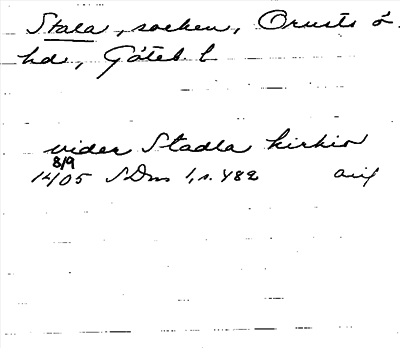 Stala, socken, Orusts ö.
hd, Göteb. l
vider Stadla kirkio
8/9
1405 SDns 1, s. 482 avj